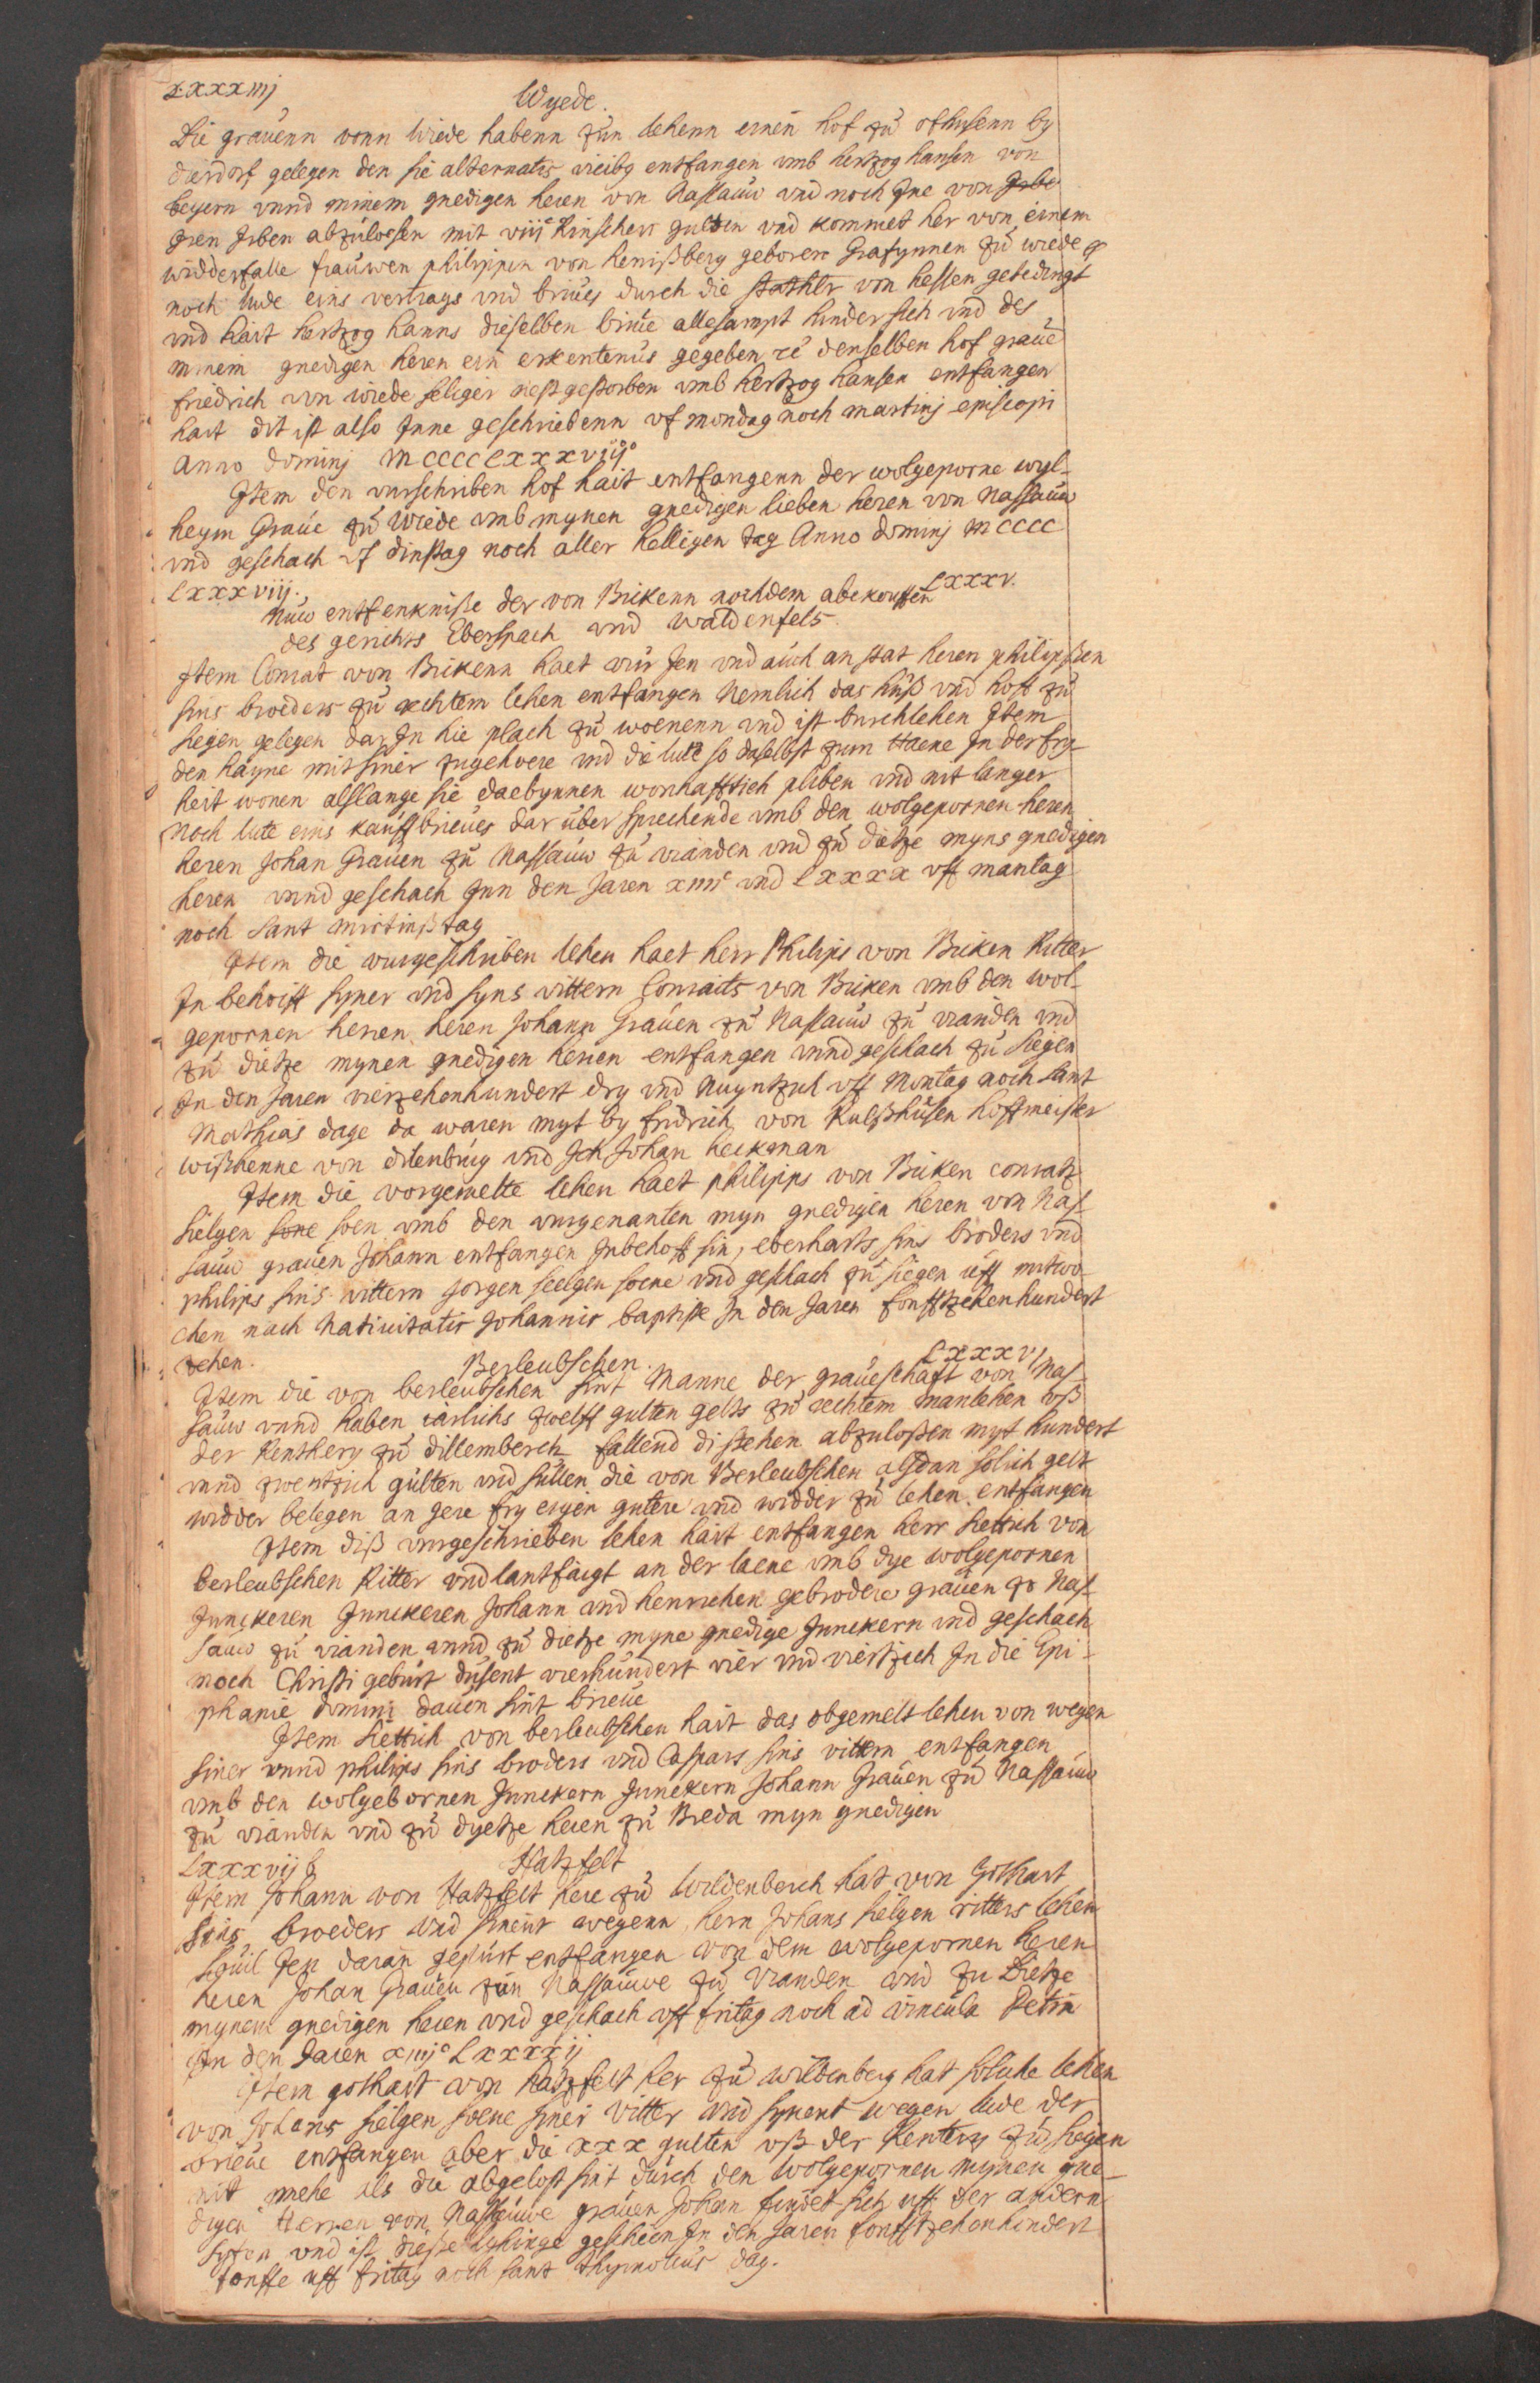 Lxxxiiij
Wyede.
Die grauenn vonn Wiede habenn zün lehenn einen hof zü ofhusenn by
dierdorf gelegen den sie alternatis vicibg entfangen vmb hertzog hansen von
beyern vnnd minem gnedigen heren von Nassauw vnd noch Jne von Jrbe
Jren Jrben abzüloesen mit viijc Rinscherr gulden vnd kommet her von einem
widderfalle frauwen philippen von henißberg geboren Grafynnen zü wiede
noch lude eins vertrags vnd briues durch die stathler von hessen gebedingt
vnd hait hertzog hanns dieselben briue allesampt hinder sich vnd des
minem gnedigen heren ein erkentenüs gegeben denselben hof graue
friedrich von wiede seliger nest gestorben vmb hertzog hansen entfangen
hait dit ist also Jnne geschriebenn vf mondag noch martinj episcopi
anno dominj MCCCCLxxxviijo
Jtem den vurschriben hof hait entfangenn der wolgeporne wyl-
heym Graue zü Wiede vmb mynen gnedigen lieben heren von Nassauw
vnd geschach vf dinstag noch aller helligen tag Anno dominj MCCCC
Lxxxviij.
Lxxxv.
Nuw entfenkniße der von Bickenn nochdem abekouffen
des gerichts Eberspach vnd waldenfels
Jtem Conrat von Bickenn haet vür Jen vnd aüch an stat heren philipßen
sins broeders zü rechtem lehen entfangen Nemlich das hüß vnd hoff zü
siegen gelegen dar Jn hie plach zü woenenn vnd ist burchlehen Jtem
den hayne mit siner zugehoere vnd die lute so daselbst zum Haene Jn der fry-
heit wonen alslange sie daebynnen wonhafftich pliben vnd nit langer
Noch lute eins kauffbrieues dar über sprechende vmb den wolgepornen heren
heren Johan Grauen zü Nassauw zü vianden vnd zü dietze myns gnedigen
heren vnnd geschach Jnn den Jaren xiiijc vnd Lxxxx vff mantag
noch Sant mirtinß tag
Jtem die vurgeschriben lehen haet herr Philips von Bicken Ritter
Jn behoift syner vnd syns vittern Conraits von Bicken vmb den wol-
gepornen herren heren Johann Grauen zü Nassauw zü vianden vnd
zü dietze mynen gnedigen herren entfangen vnnd geschach zü siegen
Jn den Jaren vierzehenhundert dry vnd Nuyntzich vff Montag noch sant
Mathias dage da waren myt by fridrich von Rulßhüsen hoffmeister
wißhenne von dilenbürg vnd Jch Johan heckman
Jtem die vorgemelte lehen haet philipps von Bicken conratz
seligen sone soen vmb den vurgenanten myn gnedigen heren von Nas-
sauw grauen Johann entfangen Jnbehoff sin, eberharts sins broders vnd
philips sins vittern Jorgen seelgen soene vnd geschach zü siegen üff mitwo-
chen nach Natiuitatis Johannis baptiste Jn den Jaren fonfftzehenhundert
zehen.
Berleubschen.
Lxxxvj
Jtem die von berleubschen sint Manne der graueschaft von Nas-
sauw vnnd haben iarlichs zwelff gulten gelts zü rechtem manlehen vß
der Renthery zü dillemberch fallend distehen abzulosen myt hundert
vnnd zwentzich gülten vnd süllen die von Berleubschen alsdan solich gelt
widder belegen an gere fry eygen gutere vnd widder zü lehen entfangen
Jtem diß vurgeschrieben lehen hait entfangen herr Sittich von
berleubschen Ritter vnd lantfaigt an der laene vmb dye wolgepornen
Junckeren Junckeren Johann vnd henrichen gebrodere grauen zo Nas-
sauw zü vianden vnnd zü dietze myne gnedige Junckern vnd geschach
noch Christi gebürt düsent vierhündert vier vnd viertzich Jn die Epi-
phanie domini dauen sint brieue
Jtem Sittich von berleubschen hait das obgemelt lehen von wegen
siner vnnd philips sins broders vnd Caspars sins vittern entfangen
vmb den wolgebornen Junckern Junckern Johann Grauen zü Nassauw
zü vianden vnd zü dyetze heren zü Breda myn gnedigen
Lxxxvij
Hatzfelt
Jtem Johann von Hatzfelt here zü Wildenberch hat von Gothart
sins broeders vnd sinent wegenn hern Johans seligen ritters lehen
souil Jem daran gepürt entfangen von dem wolgepornen heren
heren Johan Grauen zün Nassauwe zü vianden vnd zu Dietze
mynem gnedigen heren vnd geschach vff fritag noch ad vincula Petri
Jn den Jaren xiiijc Lxxxxij
Jtem gothart von Hatzfelt her zü wildenberg hat soliche lehen
von Johans seligen soene siner vitter vnd synent wegen lude der
brieue entfangen aber die xxx gulten vß der Rentery zü siegen
nit mehe als die abgelost sint dürch den wolgepornen mynen gne-
digen Herren von Nassauwe grauen Johan findet sich uff der andern
syten vnd ist dieße geschien Jn den Jaren fonfftzehenhundert
fonffe vff fritag noch sant thymoteus dag.